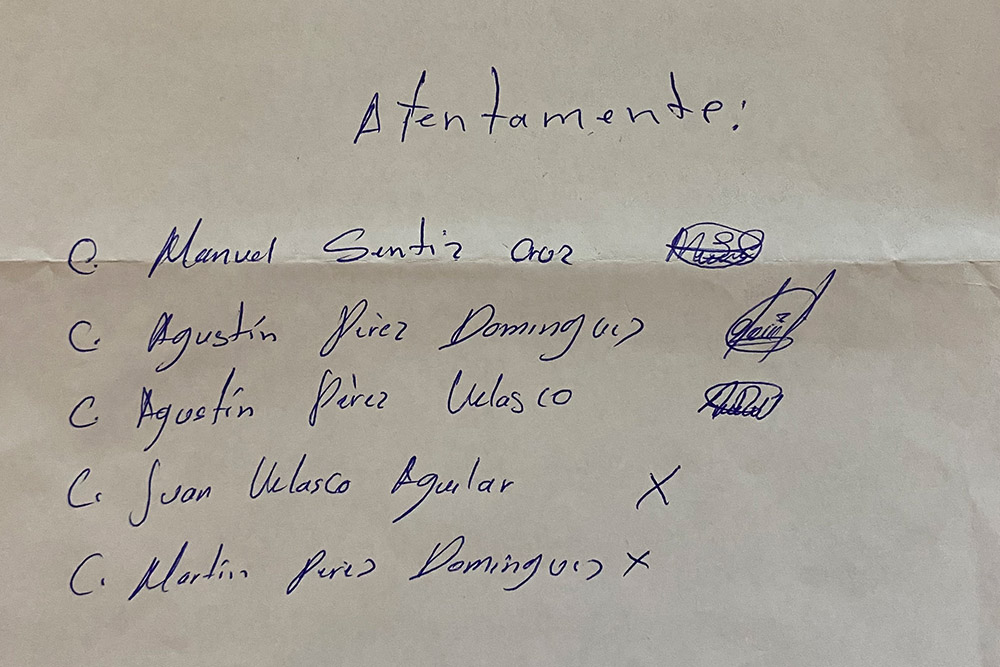 Atentamente:
C. Manuel Sentiz Cruz
C. Agustín Pérez Dominguez
C. Agustín Pérez Velasco
C. Juan Velasco Aguilar X
C. Martín Perez Dominguez X